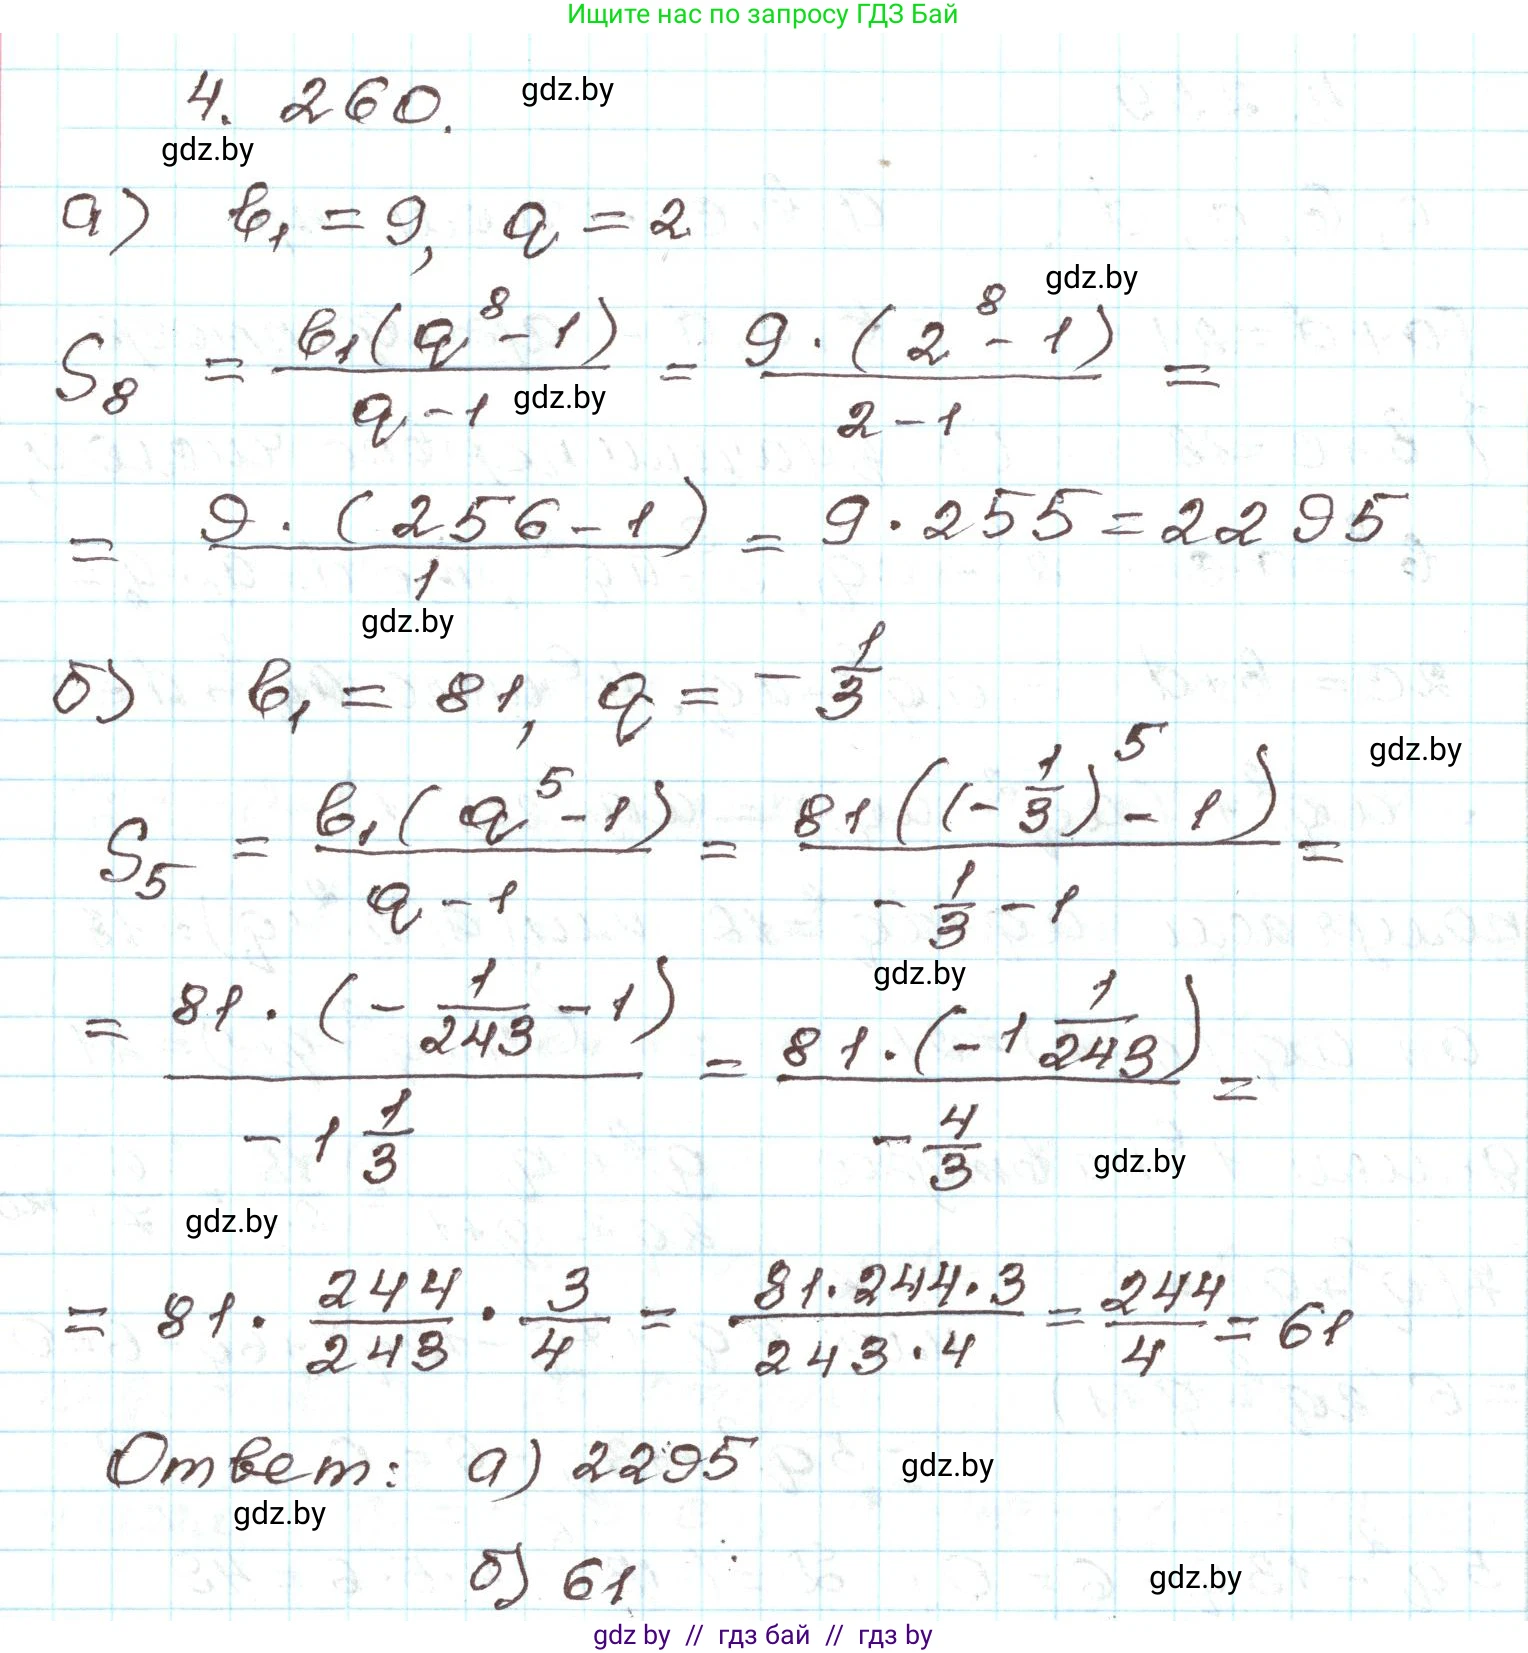 Ищите нас по запросу ГДЗ Бай
4. 260.
gdz.by
gdz.by
а) b₁ = 9, q = 2
gdz.by
S₈ = b₁(q⁸ - 1) / (q - 1) = 9 · (2⁸ - 1) / (2 - 1) =
gdz.by
= 9 · (256 - 1) / 1 = 9 · 255 = 2295
gdz.by
б) b₁ = 81, q = - 1/3
gdz.by
S₅ = b₁(q⁵ - 1) / (q - 1) = 81((- 1/3)⁵ - 1) / (- 1/3 - 1) =
gdz.by
= 81 · (- 1/243 - 1) / (- 1 1/3) = 81 · (- 1 1/243) / (- 4/3) =
gdz.by
gdz.by
= 81 · 244/243 · 3/4 = 81·244·3 / (243·4) = 244/4 = 61
Ответ: а) 2295
gdz.by
gdz.by
б) 61
gdz.by
gdz by // гдз бай // гдз by